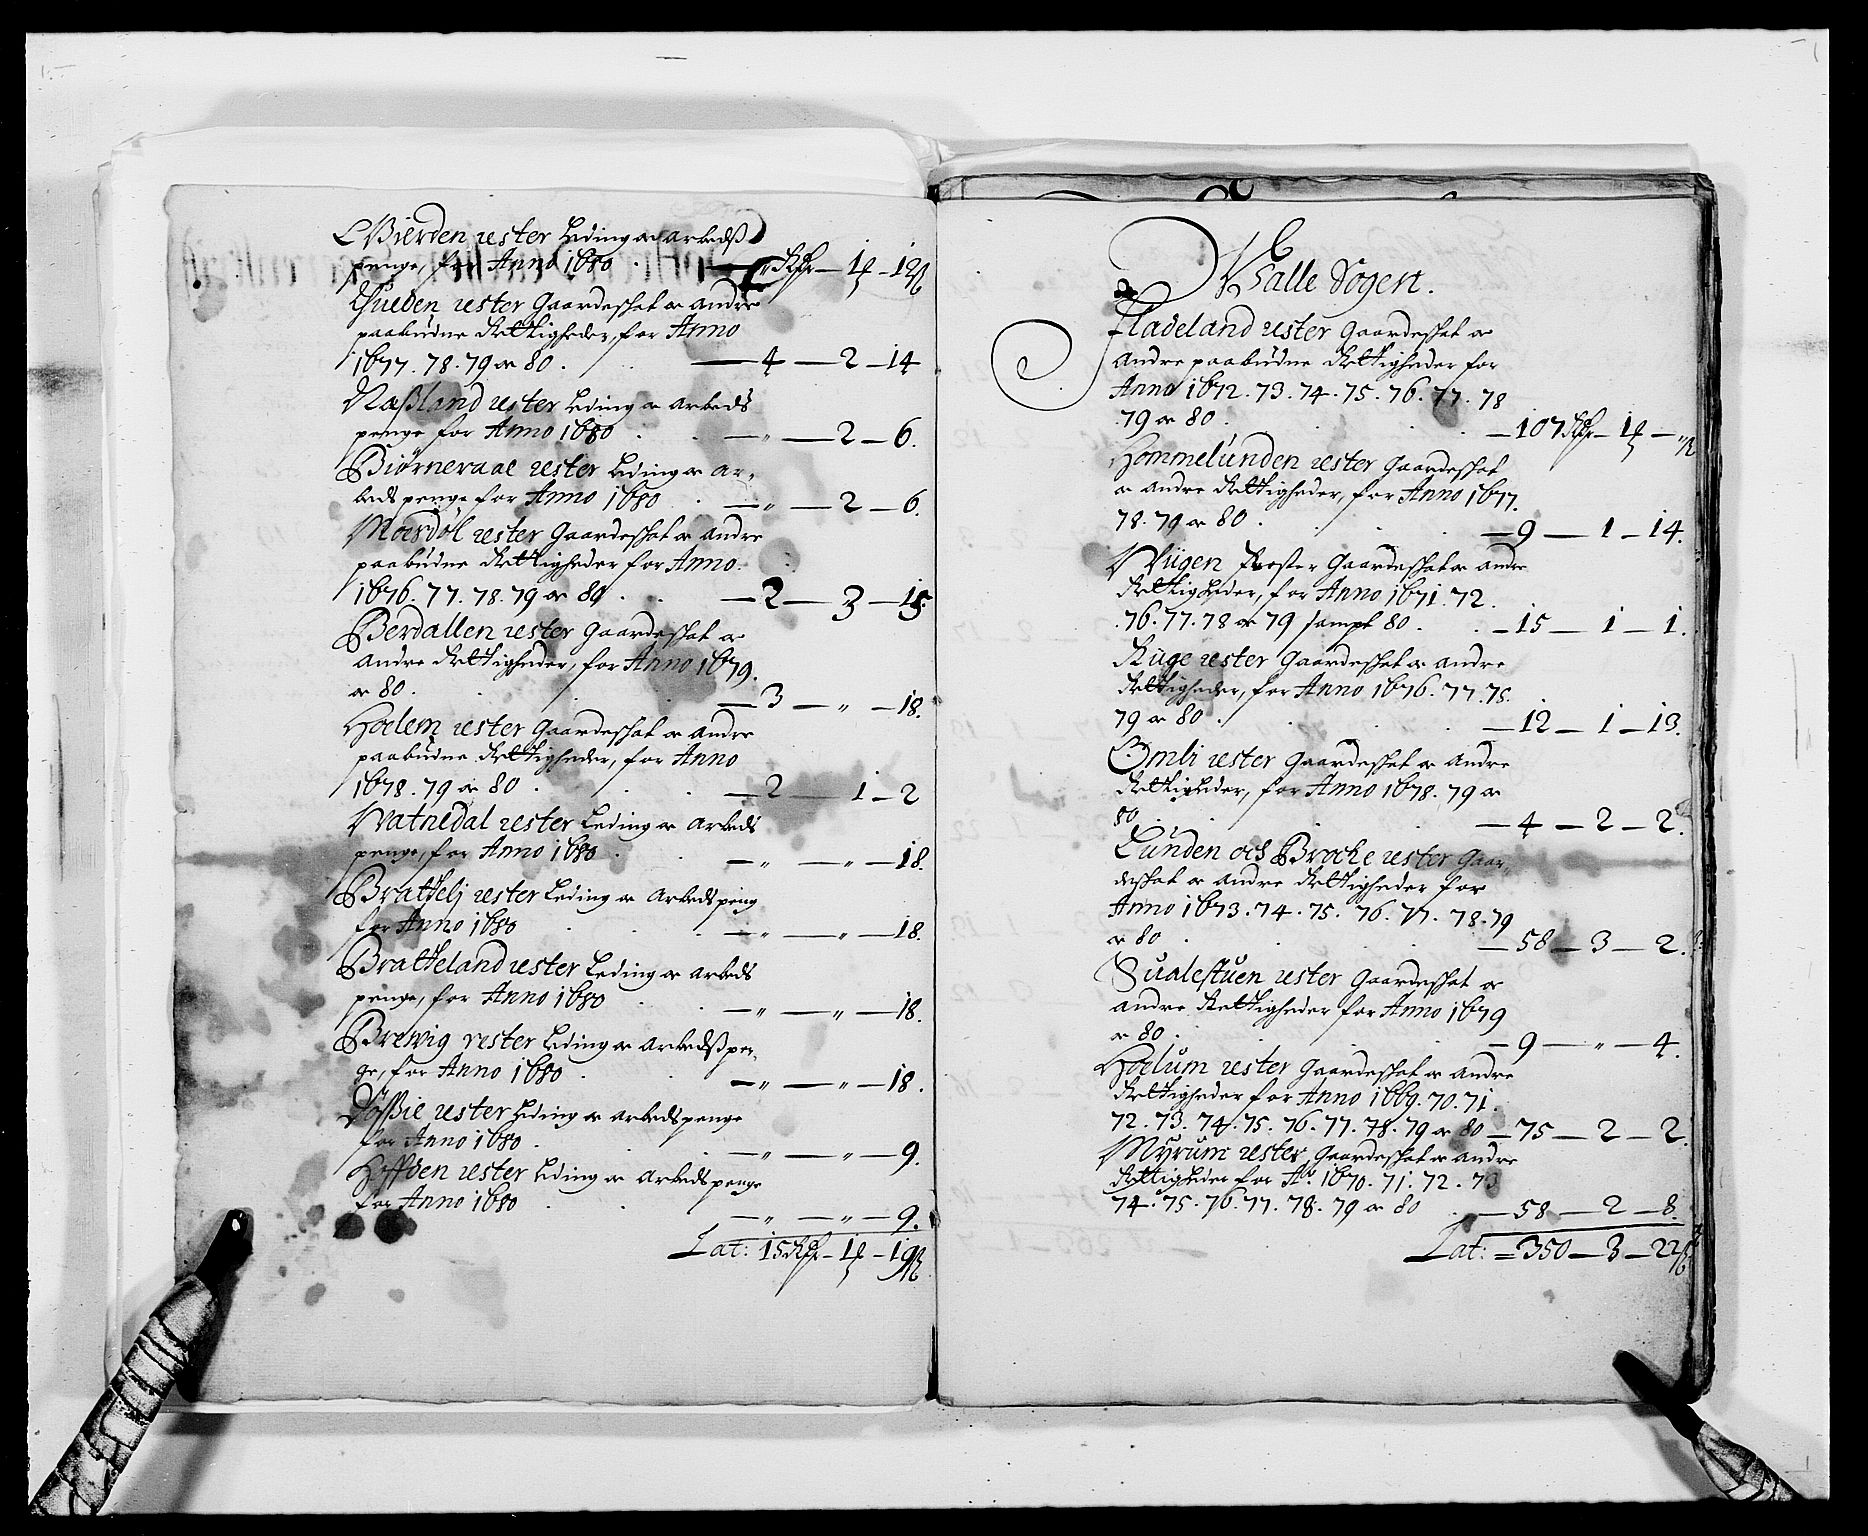 Bierden rester Leding oc arbedß
penge, for Anno 1680 . — „ Rdr — 1 — 12 ß
Gulden rester Gaardeskat oc andre
paabudne Rettigheder, for Anno
1677. 78. 79 oc 80 . — 4 — 2 — 14
Naßland rester Leding oc arbeds
penge for Anno 1680 . — „ — 2 — 6.
Biørneraae rester Leding oc ar-
beds penge for Anno 1680 . — „ — 2 — 6.
Maasdøl rester Gaardeskat oc andre
paabudne Rettigheder for Anno
1676. 77. 78. 79 oc 80 . — 2 — 3 — 15
Berdallen rester Gaardeskat oc
andre Rettigheder, for Anno 1679.
oc 80 . — 3 — „ — 18.
Hoelem rester Gaardeskat oc andre
paabudne Rettigheder, for Anno
1678. 79 oc 80 . — 2 — 1 — 2
Vatnedal rester Leding oc arbeds
penge, for Anno 1680 . — „ — „ — 18.
Brattelj rester Leding oc Arbeds peng
for Anno 1680 . — „ — „ — 18.
Bratteland rester Leding oc arbeds
penge, for Anno 1680 . — „ — „ — 18.
Brewig rester Leding oc arbedß pen-
ge, for Anno 1680 . — „ — „ — 18.
rester Leding oc arbeds penge
for Anno 1680 . — „ — „ — 9.
Hoffden rester Leding oc Arbeds penge
for Anno 1680 . — „ — „ — 9.
Lat: 15 Rdr — 1 — 19 ß
Walle Sogen.
Fladeland rester Gaardeskat oc
andre paabudne Rettigheder for
Anno 1672. 73. 74. 75. 76. 77. 78
79 oc 80 . — 107 Rdr — 1 — „ ß
Hommelunden rester Gaardeskat
oc andre Rettigheder, for Anno 1677.
78. 79 oc 80 . — 9 — 1 — 14.
Gaardeskat oc andre
Rettigheder, for Anno 1671. 72.
76. 77. 78 oc 79 sampt 80 . — 15 — 1 — 1.
Rüge rester Gaardeskat oc andre
Rettigheder, for Anno 1676. 77. 78.
79 oc 80 . — 12 — 1 — 13.
Omli rester Gaardeskat oc andre
Rettigheder, for Anno 1678. 79 oc
80 . — 4 — 2 — 2.
Lunden och Brocke rester Gaar-
deskat oc andre Rettigheder for
Anno 1673. 74. 75. 76. 77. 78. 79
oc 80 . — 58 — 3 — 2.
Sualestuen rester Gaardeskat oc
andre Rettigheder for Anno 1679
oc 80 . — 9 — „ — 4.
Hoelum rester Gaardeskat oc andre
Rettigheder for Anno 1669. 70. 71.
72. 73. 74. 75. 76. 77. 78. 79 oc 80 — 75 — 2 — 2.
Myrum rester Gaardeskat oc andre
Rettigheder for Ao. 1670. 71. 72. 73
74. 75. 76. 77. 78. 79 oc 80 . — 58 — 2 — 8.
Lat: = 350 — 3 — 22 ß